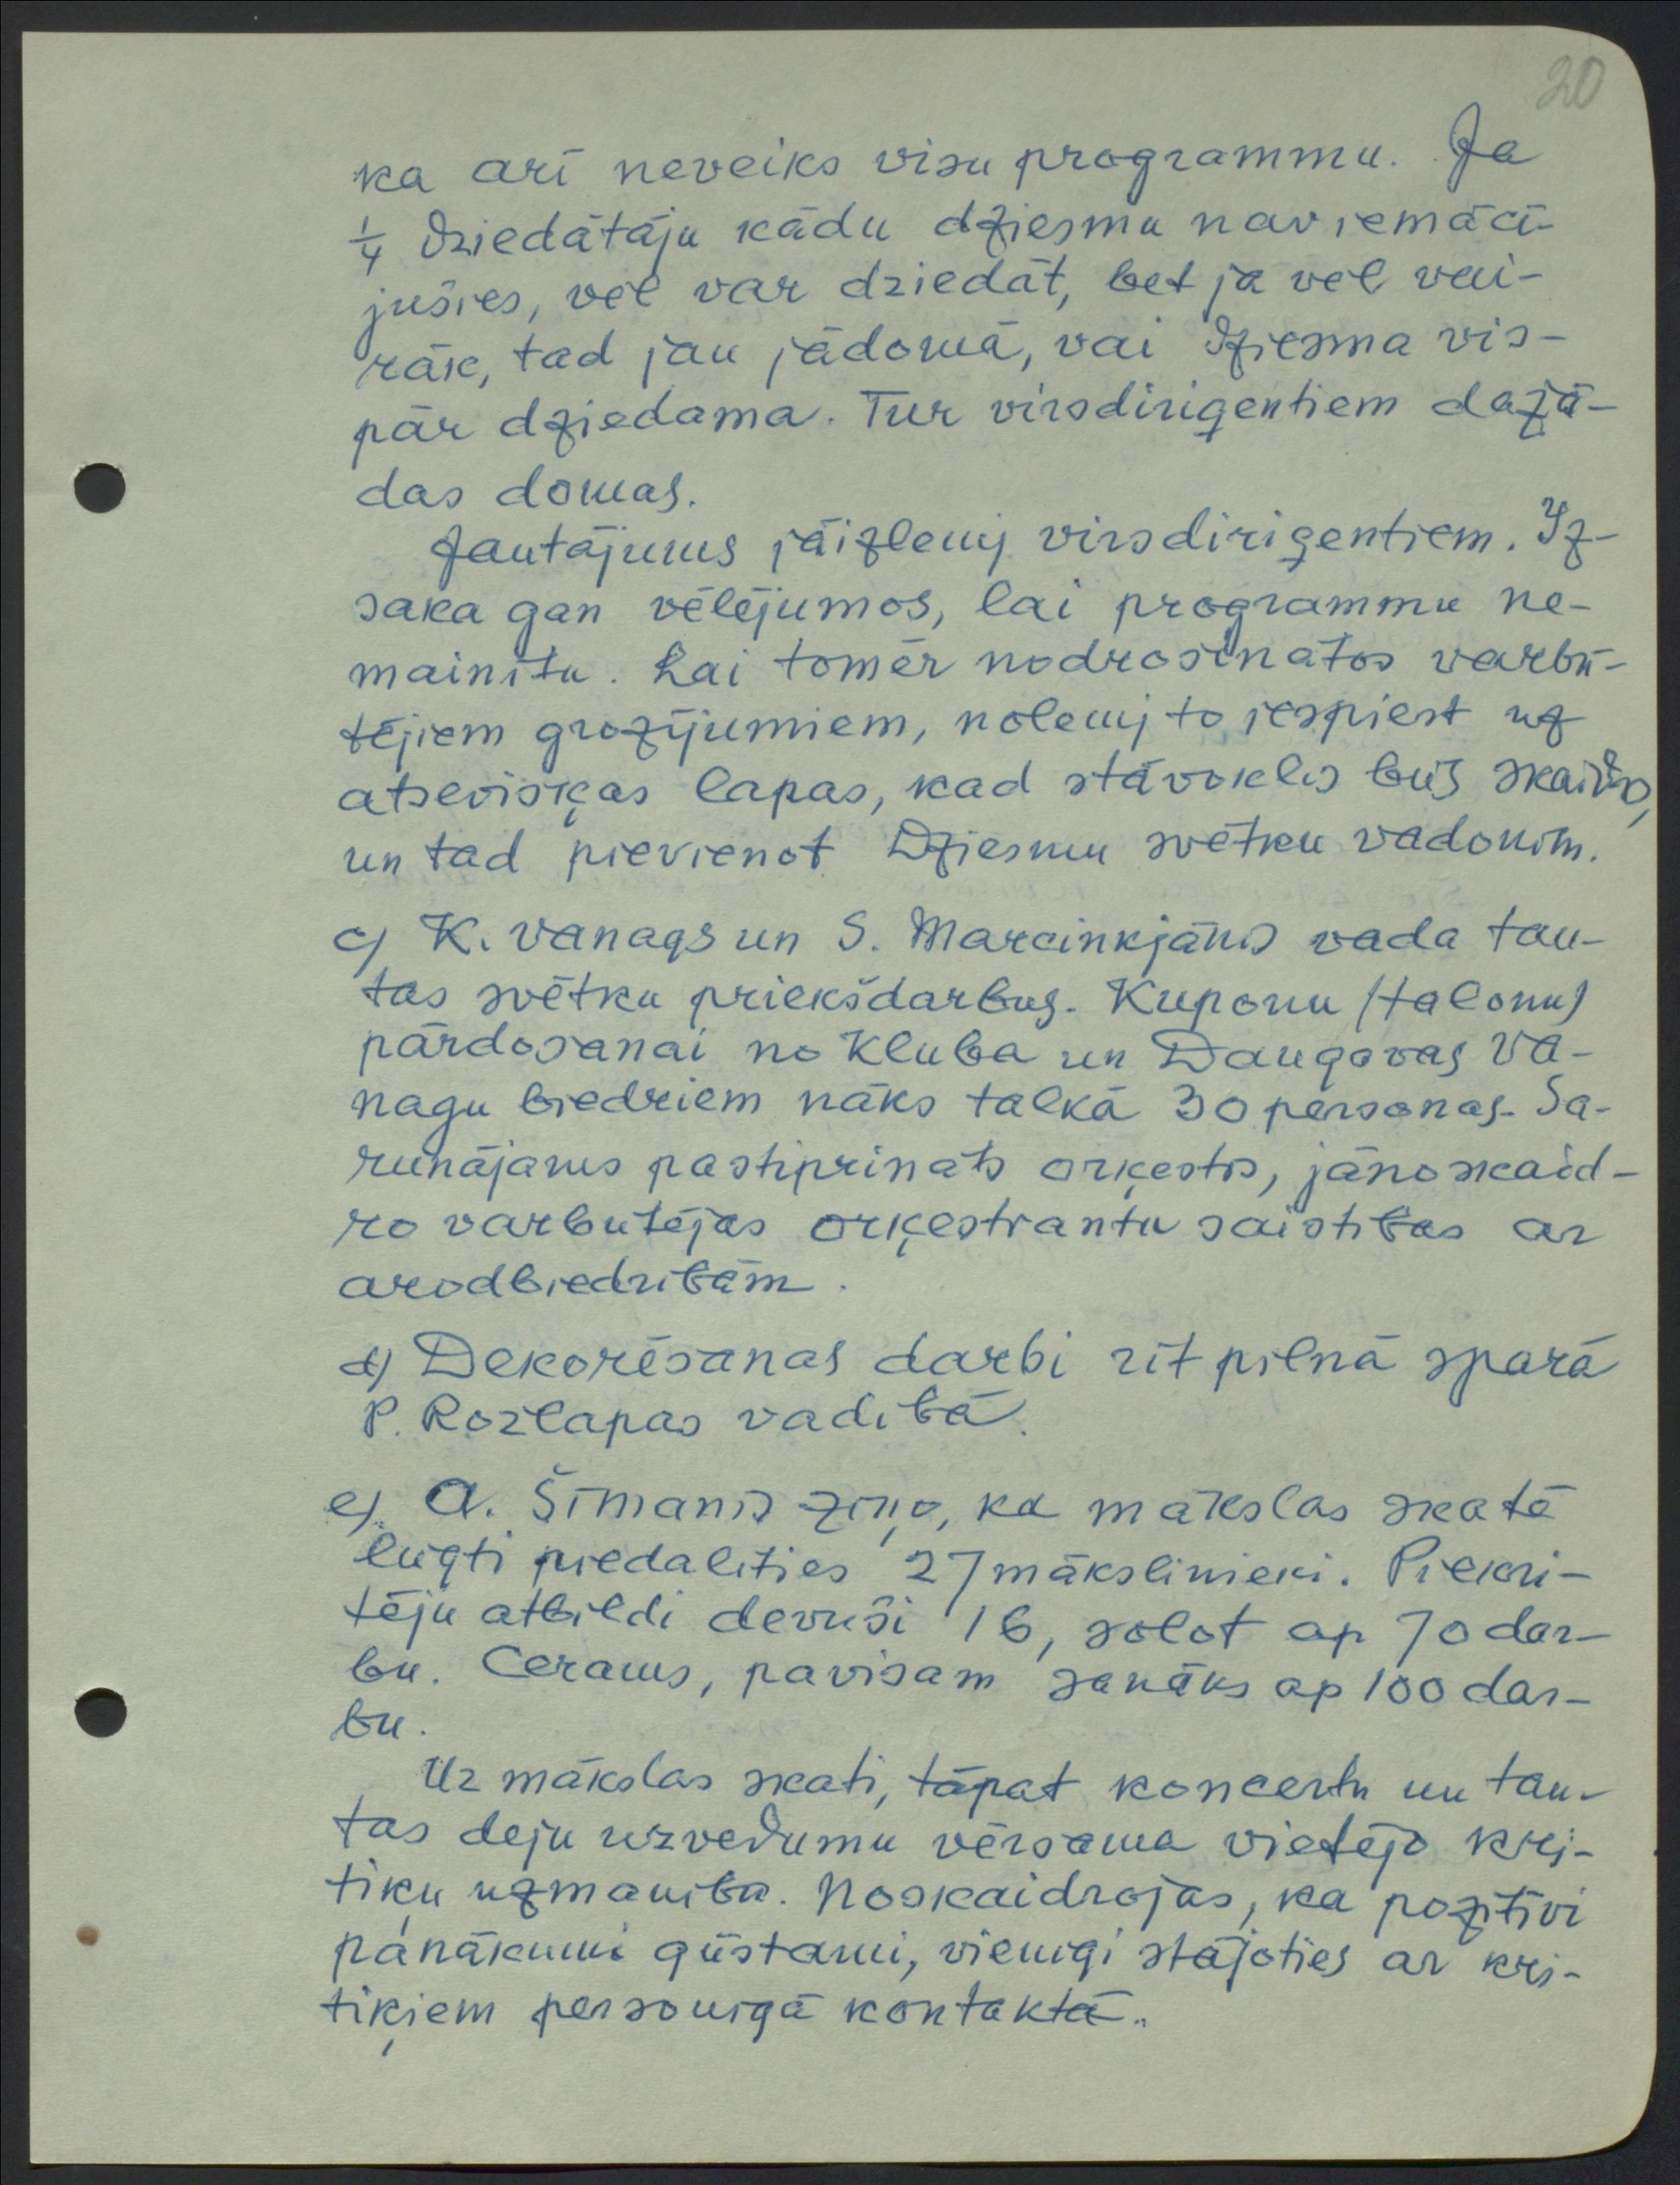 20
ka arī neveiks visu programmu. Ja
1/4 dziedātāju kādu dziesmu nav iemācī-
jušies, vēl var dziedāt, bet ja vēl vai-
rāk, tad jau jādomā, vai dziesma vis-
pār dziedama. Tur virsdiriģentiem dažā-
das domas.
Jautājums jāizlemj virsdiriģentiem. Iz-
saka gan vēlējumos, lai programmu ne-
mainītu. Lai tomēr nodrošinātos varbū-
tējiem grozījumiem, nolemj to iespiest uz
atsevišķas lapas, kad stāvoklis būs skaidrs,
un tad pievienot Dziesmu svētku vadonim.
c) K. Vanags un S. Marcinkjānis vada tau-
tas svētku priekšdarbus. Kuponu (talonu)
pārdošanai no Kluba un Daugavas Va-
nagu biedriem nāks talkā 30 personas. Sa-
runājams pastiprināts orķestis, jānoskaid-
ro varbūtējas orķestrantu saistības ar
arodbiedrībām.
d) Dekorēšanas darbi rit pilnā sparā
P. Rozlapas vadībā.
e) A. Šīmanis ziņo, ka mākslas skatē
lūgti piedalīties 27 mākslinieki. Piekri-
tēju atbildi devuši 16, solot ap 70 dar-
bu. Cerams, pavisam sanāks ap 100 dar-
bu.
Uz mākslas skati, tāpat koncertu un tau-
tas deju uzvedumu vēršama vietējo kri-
tiķu uzmanība. Noskaidrojas, ka pozitīvi
panākumi gūstami, vienīgi stājoties ar kri-
tiķiem personīgā kontaktā.